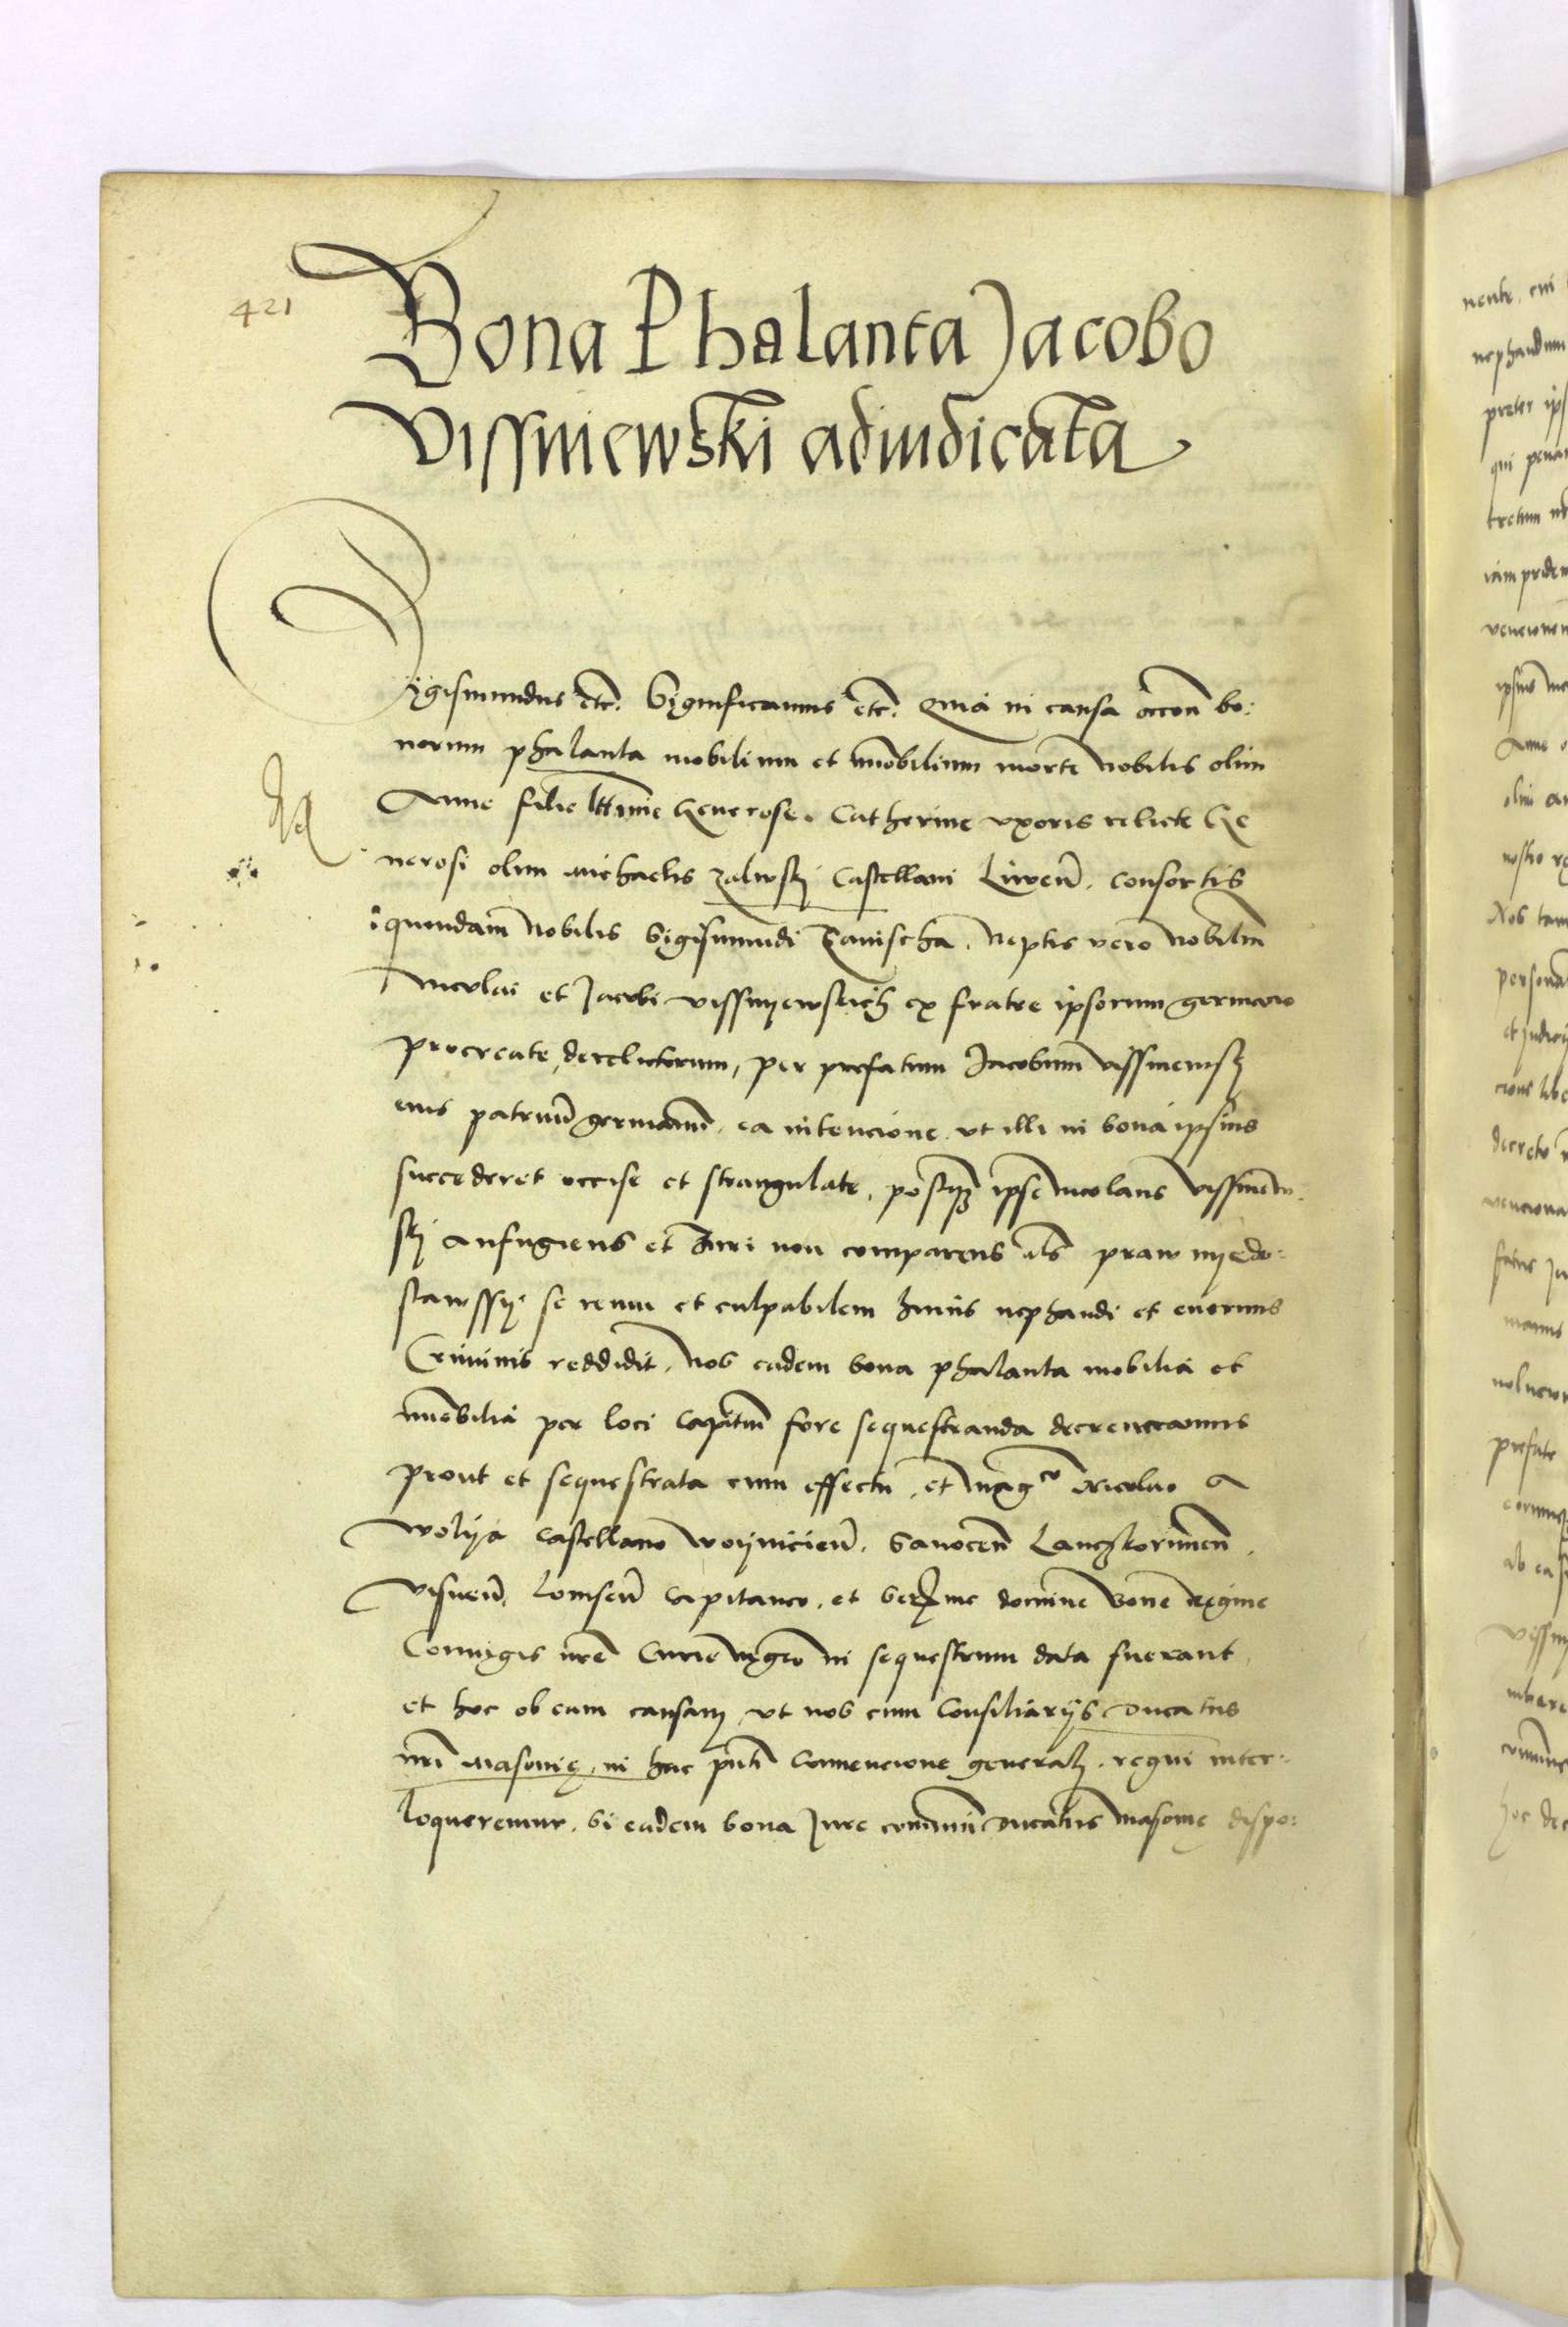 421
Bona Phalanta Jacobo
Vissniewski adiudicata
Sigismundus etc. Significamus etc. Quia in causa occōn bo:
norum phalanta mobilium et īmobilium morte Nobilis olim
Anne filie Generose. Catherine uxoris relicte Ge
nerosi olim Michaelis Zaliwskj Castellani Liwen̄. consortis
quondam Nobilis Sigismundi . Neptis vero Nobiliū
Nicolai et Jacobi Vissnyewskich ex fratre ipsorum germano
procreate, derelictorum, per prefatum Jacobum Vissniewskj
eius patruū germanū. ea intencione. ut illi in bona ipsius
succederet occise et strangulate, postqz ipse Nicolaus Vissniew:
skj aufugiens et Juri non comparens als praw nyedo:
stawssy. se reum et culpabilem huius nephandi et enormis
Criminis reddidit. Nos eadem bona phalanta mobilia et
īmobilia per loci Capitm̄ fore sequestranda decreveramus
prout et sequestrata cum effectu, et Mag^co Nicolao a
Wolija Castellano Woijnicien̄. Sanocen̄ Lanczkorunen̄.
Visnen̄. Lomsen̄ Capitaneo. et Ser^me domine Bone regine
Coniugis nr̄e Curie mgr̄o in sequestrum data fuerant
et hoc ob eam causam, ut nos cum Consiliarijs Ducatus
nrī Masovię, in hac pn̄ti Convencione generalj. regni inter:
loqueremur. Si eadem bona Jure communi Ducatus Masovię dispo:
nente. cui
nephandum
preter ips
qui penam
iam pridem
ipsius
Anne
olim
nostro
Nos tam
persona
decreto
prefate
ab ea
hoc dec